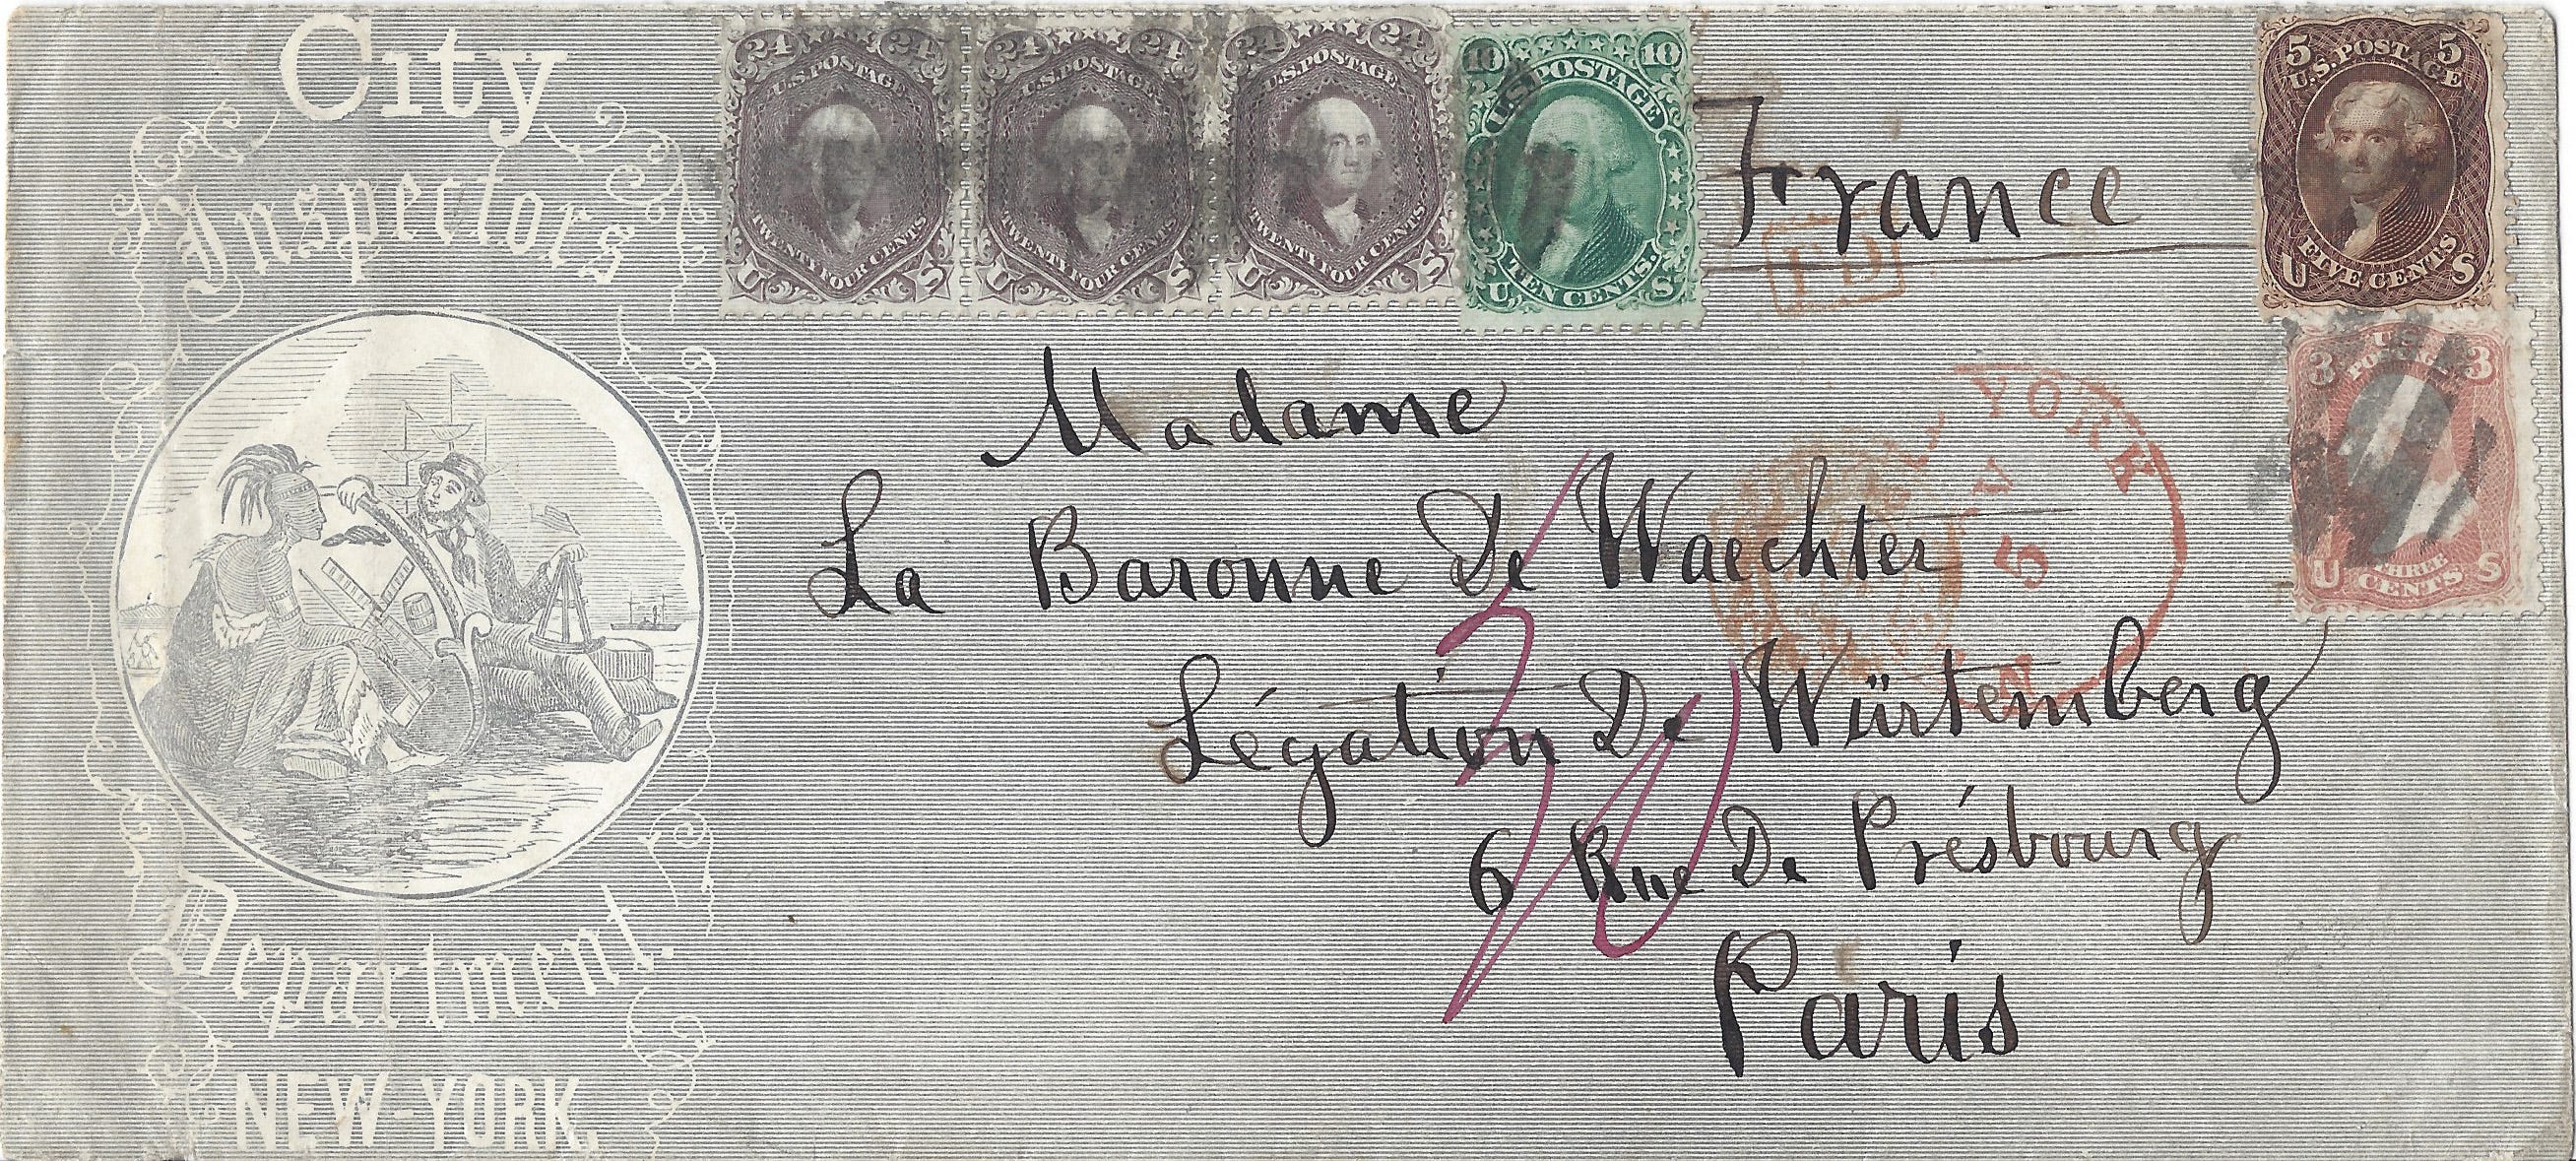 City
Inspectors
Department.
NEW-YORK,
24 24
U.S. POSTAGE
TWENTY FOUR CENTS
U S
24 24
U.S. POSTAGE
TWENTY FOUR CENTS
U S
24 24
U.S. POSTAGE
TWENTY FOUR CENTS
U S
10 10
U.S. POSTAGE
TEN CENTS.
U. S
France
PD
5 5
U.S. POSTAGE
FIVE CENTS
U S
3 3
U.S.
POSTAGE
THREE
CENTS
U S
YORK
5
Madame
La Baronne De Waechter
Légation De Würtemberg
6 Rue De Présbourg
Paris